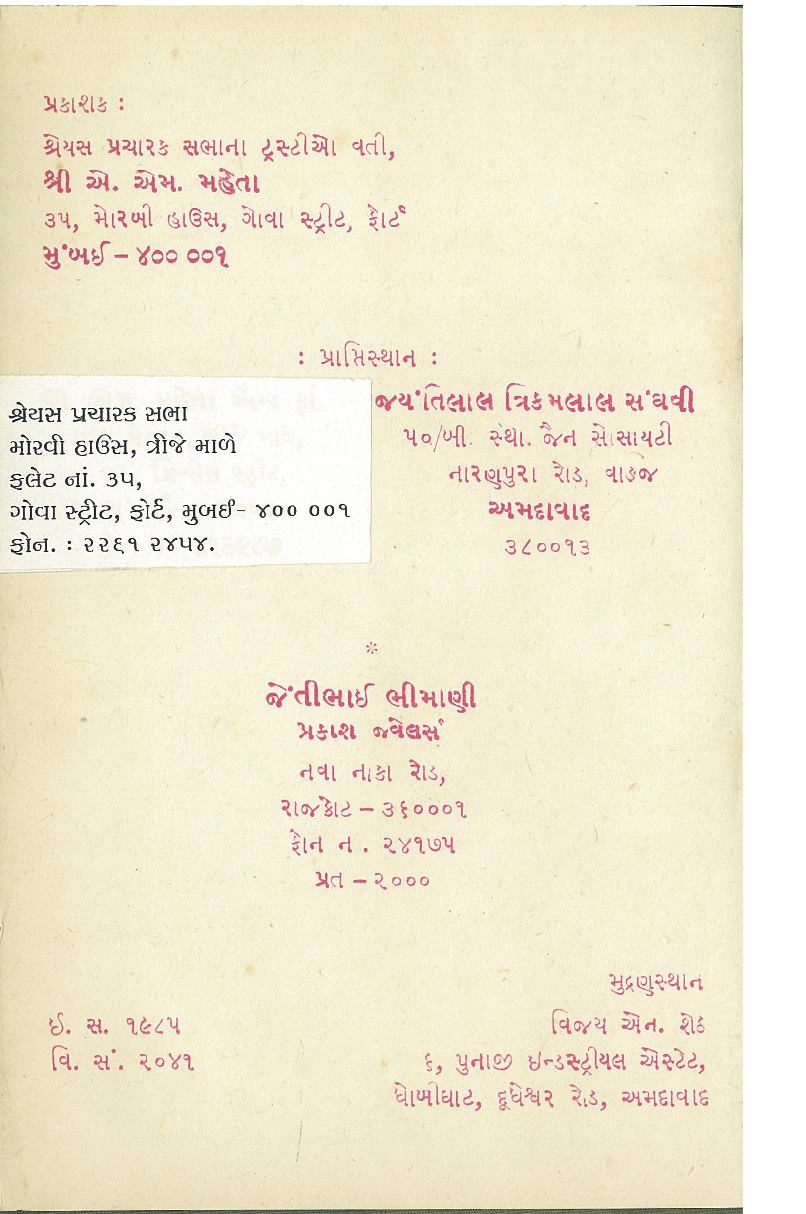 પ્રકાશક :
શ્રેયસ પ્રચારક સભાના ટ્રસ્ટીઓ વતી,
શ્રી એ. એમ. મહેતા
૩૫, મોરબી હાઉસ, ગોવા સ્ટ્રીટ, ફોર્ટ
મુંબઈ – ૪૦૦ ૦૦૧
: પ્રાપ્તિસ્થાન :
શ્રેયસ પ્રચારક સભા
મોરવી હાઉસ, ત્રીજે માળે
ફલેટ નાં. ૩૫,
ગોવા સ્ટ્રીટ, ફોર્ટ, મુબઈ- ૪૦૦ ૦૦૧
ફોન. : ૨૨૬૧ ૨૪૫૪.
જયંતિલાલ ત્રિકમલાલ સંઘવી
૫૦/બી. સ્થા. જૈન સોસાયટી
નારણપુરા રોડ, વાડજ
અમદાવાદ
૩૮૦૦૧૩
*
જેંતીભાઈ ભીમાણી
પ્રકાશ જ્વેલર્સ
નવા નાકા રોડ,
રાજકોટ – ૩૬૦૦૦૧
ફોન ન . ૨૪૧૭૫
પ્રત – ૨૦૦૦
ઈ. સ. ૧૯૮૫
વિ. સં. ૨૦૪૧
મુદ્રણસ્થાન
વિજય એન. શેઠ
૬, પુનાજી ઇન્ડસ્ટ્રીયલ એસ્ટેટ,
ધોબીઘાટ, દૂધેશ્વર રોડ, અમદાવાદ